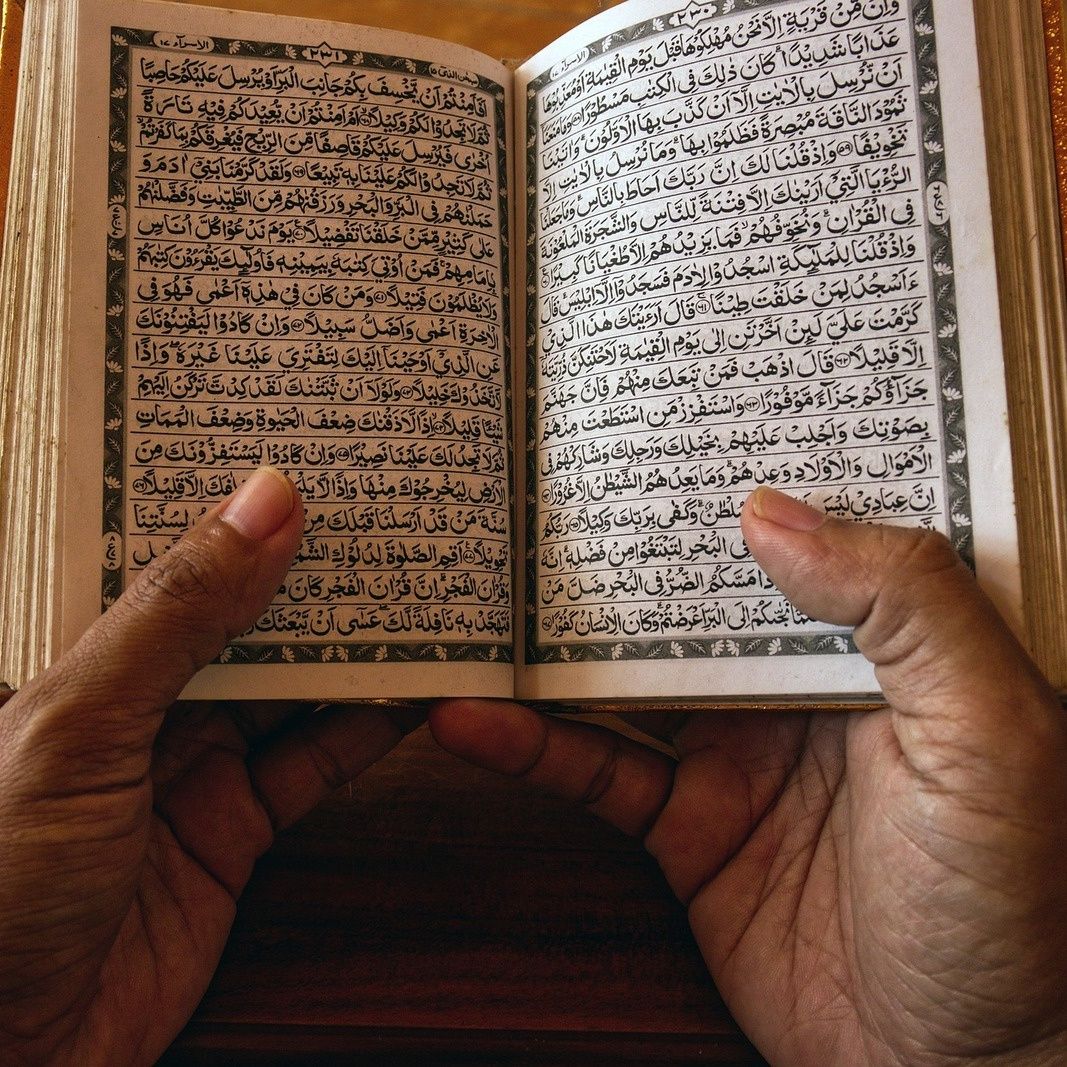 الاسرآء ١٧
٢٣٠
وَاِنْ مِّنْ قَرْيَةٍ اِلَّا نَحْنُ مُهْلِكُوْهَا قَبْلَ يَوْمِ الْقِيٰمَةِ اَوْ مُعَذِّبُوْهَا
عَذَابًا شَدِيْدًا ؕ كَانَ ذٰلِكَ فِي الْكِتٰبِ مَسْطُوْرًا ﴿٥٨﴾ وَمَا مَنَعَنَاۤ
اَنْ نُّرْسِلَ بِالْاٰيٰتِ اِلَّاۤ اَنْ كَذَّبَ بِهَا الْاَوَّلُوْنَ ؕ وَاٰتَيْنَا
ثَمُوْدَ النَّاقَةَ مُبْصِرَةً فَظَلَمُوْا بِهَا ؕ وَمَا نُرْسِلُ بِالْاٰيٰتِ اِلَّا
تَخْوِيْفًا ﴿٥٩﴾ وَاِذْ قُلْنَا لَكَ اِنَّ رَبَّكَ اَحَاطَ بِالنَّاسِ ؕ وَمَا جَعَلْنَا
الرُّءْيَا الَّتِيْۤ اَرَيْنٰكَ اِلَّا فِتْنَةً لِّلنَّاسِ وَالشَّجَرَةَ الْمَلْعُوْنَةَ
فِي الْقُرْاٰنِ ؕ وَنُخَوِّفُهُمْ ۙ فَمَا يَزِيْدُهُمْ اِلَّا طُغْيَانًا كَبِيْرًا ﴿٦٠﴾
وَاِذْ قُلْنَا لِلْمَلٰٓئِكَةِ اسْجُدُوْا لِاٰدَمَ فَسَجَدُوْۤا اِلَّاۤ اِبْلِيْسَ ؕ قَالَ
ءَاَسْجُدُ لِمَنْ خَلَقْتَ طِيْنًا ﴿٦١﴾ قَالَ اَرَءَيْتَكَ هٰذَا الَّذِيْ
كَرَّمْتَ عَلَيَّ لَئِنْ اَخَّرْتَنِ اِلٰى يَوْمِ الْقِيٰمَةِ لَاَحْتَنِكَنَّ ذُرِّيَّتَهٗۤ
اِلَّا قَلِيْلًا ﴿٦٢﴾ قَالَ اذْهَبْ فَمَنْ تَبِعَكَ مِنْهُمْ فَاِنَّ جَهَنَّمَ
جَزَآؤُكُمْ جَزَآءً مَّوْفُوْرًا ﴿٦٣﴾ وَاسْتَفْزِزْ مَنِ اسْتَطَعْتَ مِنْهُمْ
بِصَوْتِكَ وَاَجْلِبْ عَلَيْهِمْ بِخَيْلِكَ وَرَجِلِكَ وَشَارِكْهُمْ فِي
الْاَمْوَالِ وَالْاَوْلَادِ وَعِدْهُمْ ؕ وَمَا يَعِدُهُمُ الشَّيْطٰنُ اِلَّا غُرُوْرًا ﴿٦٤﴾
اِنَّ عِبَادِيْ لَيْسَ سُلْطٰنٌ ؕ وَكَفٰى بِرَبِّكَ وَكِيْلًا ﴿٦٥﴾ رَبُّكُمُ
الْبَحْرِ لِتَبْتَغُوْا مِنْ فَضْلِهٖ ؕ اِنَّهٗ
مَسَّكُمُ الضُّرُّ فِي الْبَحْرِ ضَلَّ مَنْ
نَجّٰىكُمْ اِلَى الْبَرِّ اَعْرَضْتُمْ ؕ وَكَانَ الْاِنْسَانُ كَفُوْرًا ﴿٦٧﴾
سبحٰن الذى ١٥
٢٣١
الاسرآء ١٧
اَفَاَمِنْتُمْ اَنْ يَّخْسِفَ بِكُمْ جَانِبَ الْبَرِّ اَوْ يُرْسِلَ عَلَيْكُمْ حَاصِبًا
ثُمَّ لَا تَجِدُوْا لَكُمْ وَكِيْلًا ﴿٦٨﴾ اَمْ اَمِنْتُمْ اَنْ يُّعِيْدَكُمْ فِيْهِ تَارَةً
اُخْرٰى فَيُرْسِلَ عَلَيْكُمْ قَاصِفًا مِّنَ الرِّيْحِ فَيُغْرِقَكُمْ بِمَا كَفَرْتُمْ
ثُمَّ لَا تَجِدُوْا لَكُمْ عَلَيْنَا بِهٖ تَبِيْعًا ﴿٦٩﴾ وَلَقَدْ كَرَّمْنَا بَنِيْۤ اٰدَمَ وَ
حَمَلْنٰهُمْ فِي الْبَرِّ وَالْبَحْرِ وَرَزَقْنٰهُمْ مِّنَ الطَّيِّبٰتِ وَفَضَّلْنٰهُمْ
عَلٰى كَثِيْرٍ مِّمَّنْ خَلَقْنَا تَفْضِيْلًا ﴿٧٠﴾ يَوْمَ نَدْعُوْا كُلَّ اُنَاسٍۭ
بِاِمَامِهِمْ ۚ فَمَنْ اُوْتِيَ كِتٰبَهٗ بِيَمِيْنِهٖ فَاُولٰٓئِكَ يَقْرَءُوْنَ كِتٰبَهُمْ
وَلَا يُظْلَمُوْنَ فَتِيْلًا ﴿٧١﴾ وَمَنْ كَانَ فِيْ هٰذِهٖۤ اَعْمٰى فَهُوَ فِي
الْاٰخِرَةِ اَعْمٰى وَاَضَلُّ سَبِيْلًا ﴿٧٢﴾ وَاِنْ كَادُوْا لَيَفْتِنُوْنَكَ
عَنِ الَّذِيْۤ اَوْحَيْنَاۤ اِلَيْكَ لِتَفْتَرِيَ عَلَيْنَا غَيْرَهٗ ۖ وَاِذًا
لَّاتَّخَذُوْكَ خَلِيْلًا ﴿٧٣﴾ وَلَوْلَاۤ اَنْ ثَبَّتْنٰكَ لَقَدْ كِدْتَّ تَرْكَنُ اِلَيْهِمْ
شَيْئًا قَلِيْلًا ﴿٧٤﴾ اِذًا لَّاَذَقْنٰكَ ضِعْفَ الْحَيٰوةِ وَضِعْفَ الْمَمَاتِ
ثُمَّ لَا تَجِدُ لَكَ عَلَيْنَا نَصِيْرًا ﴿٧٥﴾ وَاِنْ كَادُوْا لَيَسْتَفِزُّوْنَكَ مِنَ
الْاَرْضِ لِيُخْرِجُوْكَ مِنْهَا وَاِذًا لَّا خِلٰفَكَ اِلَّا قَلِيْلًا ﴿٧٦﴾
سُنَّةَ مَنْ قَدْ اَرْسَلْنَا قَبْلَكَ مِنْ لِسُنَّتِنَا
تَحْوِيْلًا ﴿٧٧﴾ اَقِمِ الصَّلٰوةَ لِدُلُوْكِ
وَقُرْاٰنَ الْفَجْرِ ؕ اِنَّ قُرْاٰنَ الْفَجْرِ كَانَ
فَتَهَجَّدْ بِهٖ نَافِلَةً لَّكَ ۖ عَسٰۤى اَنْ يَّبْعَثَكَ